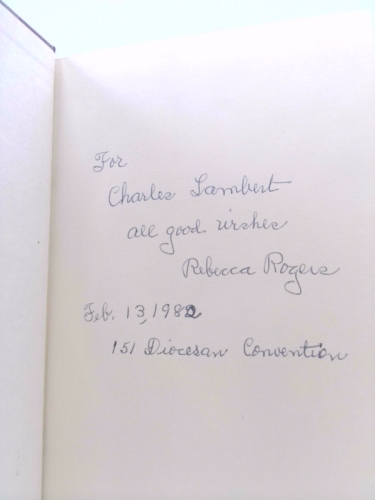 For
Charles Lambert
all good wishes
Rebecca Rogers
Feb. 13, 1982
151 Diocesan Convention